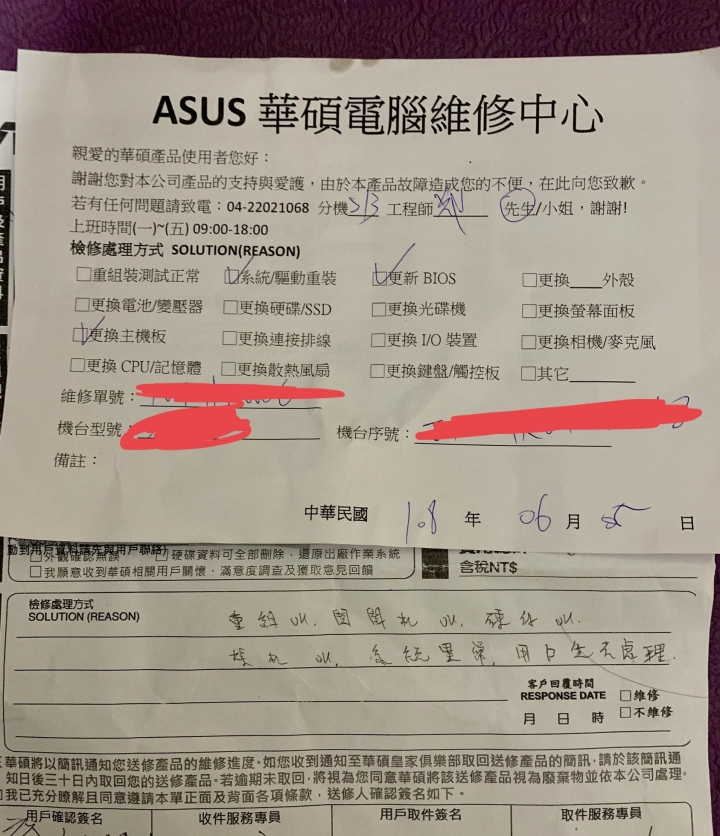 ASUS 華碩電腦維修中心
親愛的華碩產品使用者您好：
謝謝您對本公司產品的支持與愛護，由於本產品故障造成您的不便，在此向您致歉。
若有任何問題請致電：04-22021068 分機 工程師 先生/小姐，謝謝!
上班時間(一)~(五) 09:00-18:00
檢修處理方式 SOLUTION(REASON)
□重組裝測試正常 □系統/驅動重裝 □更新 BIOS □更換____外殼
□更換電池/變壓器 □更換硬碟/SSD □更換光碟機 □更換螢幕面板
□更換主機板 □更換連接排線 □更換 I/O 裝置 □更換相機/麥克風
□更換 CPU/記憶體 □更換散熱風扇 □更換鍵盤/觸控板 □其它______
維修單號：
機台型號： 機台序號：
備註：
中華民國 108 年 06 月 05 日
動到用戶資料請先與用戶聯絡)
□外觀確認無誤 □硬碟資料可全部刪除，還原出廠作業系統
□我願意收到華碩相關用戶關懷、滿意度調查及獲取意見回饋
含稅NT$
檢修處理方式
SOLUTION (REASON)
重組 OK. 開關機 OK. 硬体 OK.
烤机 OK. 系統異常, 用戶先去處理.
客戶回覆時間
RESPONSE DATE □維修
月 日 時 □不維修
華碩將以簡訊通知您送修產品的維修進度。如您收到通知至華碩皇家俱樂部取回送修產品的簡訊，請於該簡訊通
知日後三十日內取回您的送修產品。若逾期未取回，將視為您同意華碩將該送修產品視為廢棄物並依本公司處理。
我已充分瞭解且同意遵請本單正面及背面各項條款，送修人確認簽名如下。
用戶確認簽名 收件服務專員 用戶取件簽名 取件服務專員